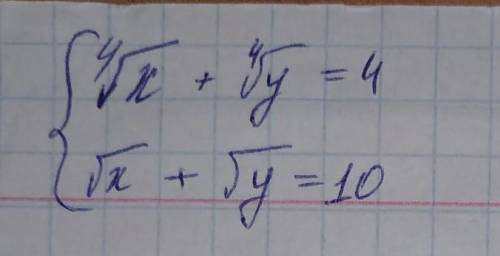 ⁴√x + ⁴√y = 4
√x + √y = 10